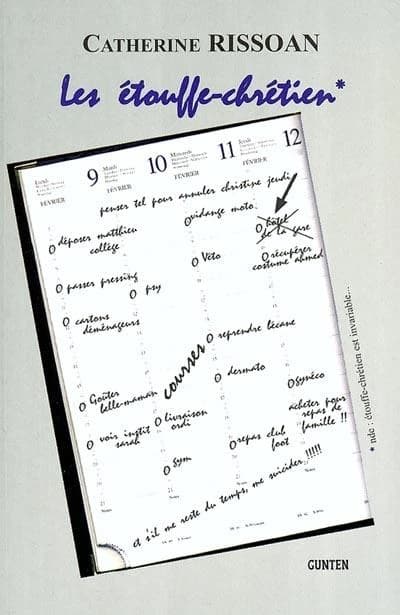 CATHERINE RISSOAN
Les étouffe-chrétien*
Lundi 9 Mardi 10 Mercredi 11 Jeudi 12
FÉVRIER FÉVRIER FÉVRIER FÉVRIER
penser tel pour annuler christine jeudi
déposer matthieu
collège
vidange moto
hôtel
de la gare
passer pressing
psy
Véto
récupérer
costume ahmed
cartons
déménageurs
courses
reprendre bécane
Goûter
belle-maman
dermato
gynéco
voir instit
sarah
livraison
ordi
acheter pour
repas de
famille !!
gym
repas club
foot
et s'il me reste du temps, me suicider !!!!!
* nde : étouffe-chrétien est invariable...
GUNTEN